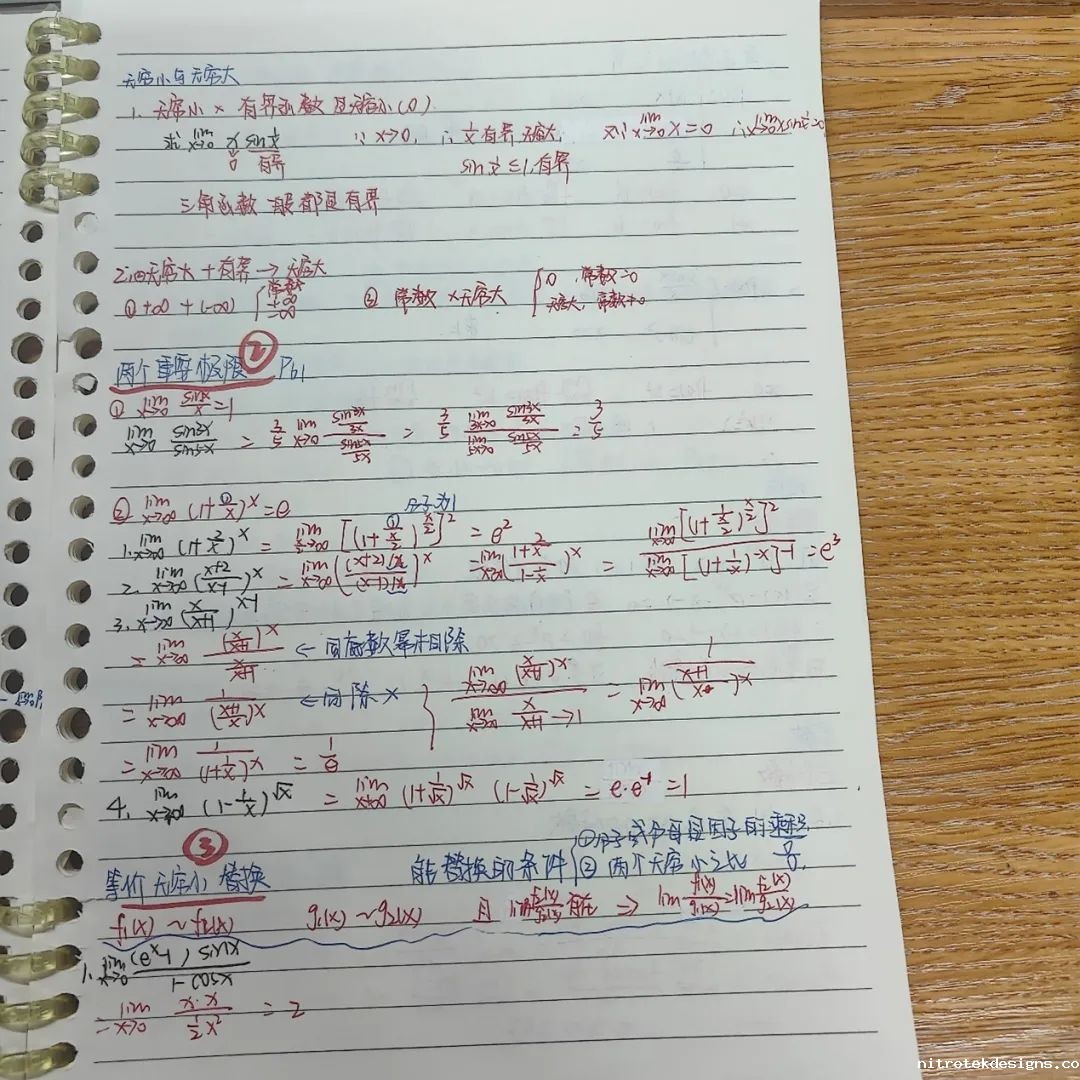 无穷小与无穷大
1. 无穷小 × 有界函数 是无穷小(0)
求 lim x→0 x sin 1/x ∵ x→0, ∴ 1/x 有界 无穷大, 又∵ lim x→0 x=0 ∴ lim x→0 x sin 1/x=0
0 有界 sin 1/x ≤1,有界
三角函数一般都是有界
2. 无穷大 + 有界 → 无穷大
① +∞ + (-∞) { 常数 +∞ -∞ ② 常数 × 无穷大 { 0, 常数=0 无穷大, 常数≠0
两个重要极限 ② P61
① lim x→0 sinx/x =1
lim x→0 sin3x/sin5x = 3/5 lim x→0 (sin3x/3x)/(sin5x/5x) = 3/5 (lim 3x→0 sin3x/3x)/(lim 5x→0 sin5x/5x) = 3/5
② lim x→∞ (1+①/x)^x = e 分子为1
1. lim x→∞ (1+2/x)^x = lim x→∞ [(1+①/(x/2))^(x/2)]^2 = e^2
2. lim x→∞ ((x+2)/(x-1))^x = lim x→∞ (((x+2)/x)/((x-1)/x))^x = lim x→∞ ((1+2/x)/(1-1/x))^x = lim x→∞ [(1+1/(x/2))^(x/2)]^2 / lim x→∞ [(1+1/-x)^-x]^-1 = e^3
3. lim x→∞ (x/(x+1))^(x-1)
= lim x→∞ (x/(x+1))^x / (x/(x+1)) ← 同底数幂相除
= lim x→∞ 1/((x+1)/x)^x ← 同除 x { lim x→∞ (x/(x+1))^x / lim x→∞ x/(x+1) →1 = lim x→∞ 1/((x+1)/x)^x
= lim x→∞ 1/(1+1/x)^x = 1/e
4. lim x→∞ (1-1/x)^√x = lim x→∞ (1+1/√x)^√x (1-1/√x)^√x = e·e^-1 = 1
③
等价无穷小替换 能替换的条件 { ① 分子或分母是因子的乘积 ② 两个无穷小之比 0/0
f1(x) ~ f2(x) g1(x) ~ g2(x) 且 lim f2(x)/g2(x) 存在 ⇒ lim f1(x)/g1(x) = lim f2(x)/g2(x)
1. lim x→0 (e^x-1) sinx / 1-cosx
= lim x→0 x·x / ½x² = 2
nitrotekdesigns.com